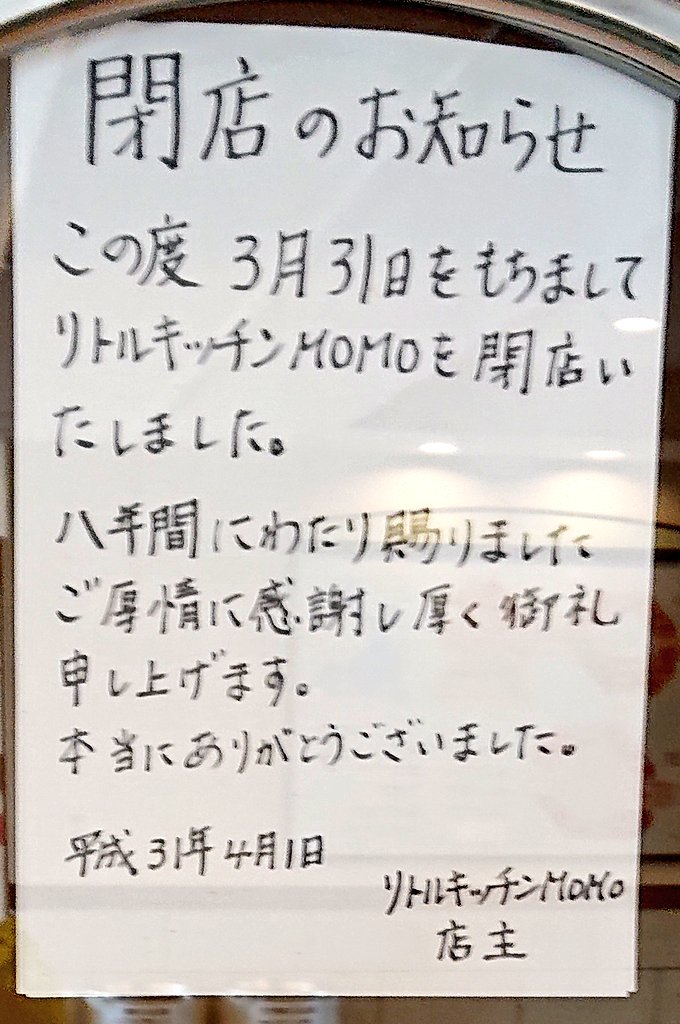 閉店のお知らせ
この度 3月31日をもちまして
リトルキッチンMOMOを閉店い
たしました。
八年間にわたり賜りました
ご厚情に感謝し厚く御礼
申し上げます。
本当にありがとうございました。
平成31年4月1日
リトルキッチンMOMO
店主